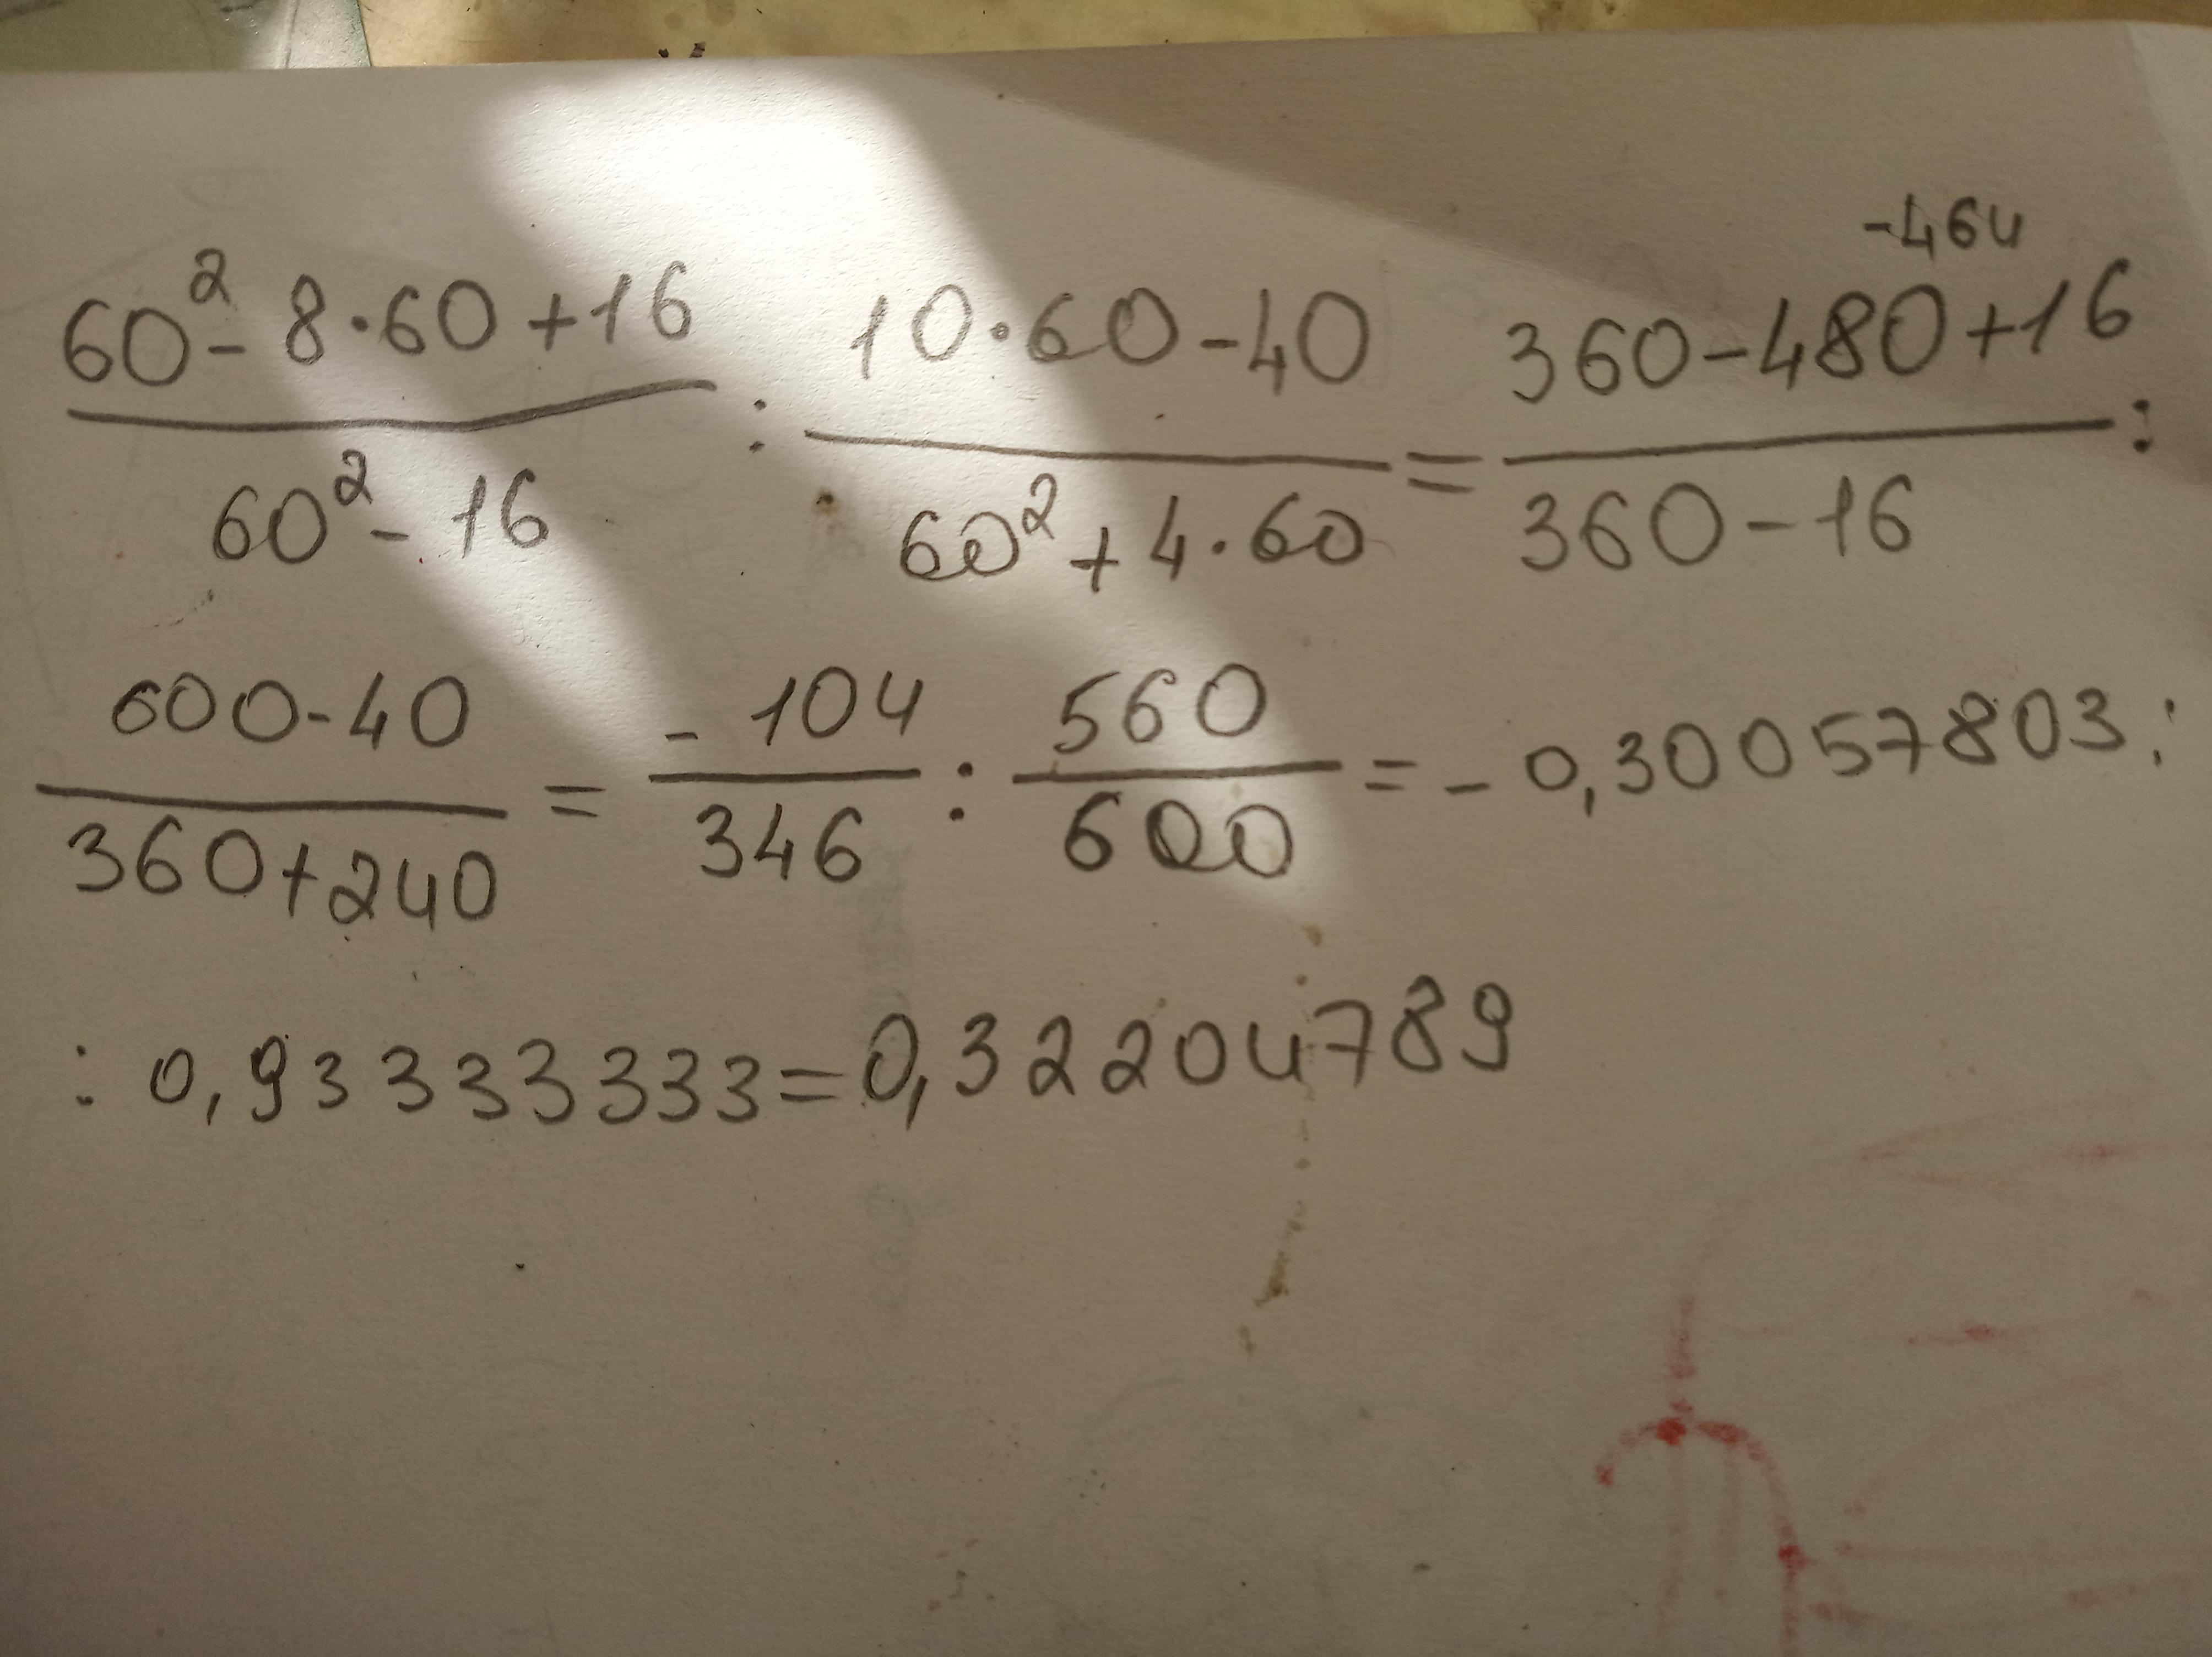 -464
60² - 8·60+16 / 60² - 16 : 10·60-40 / 60² + 4·60 = 360-480+16 / 360-16 :
600-40 / 360+240 = -104 / 346 : 560 / 600 = -0,30057803 :
: 0,93333333=0,32204789